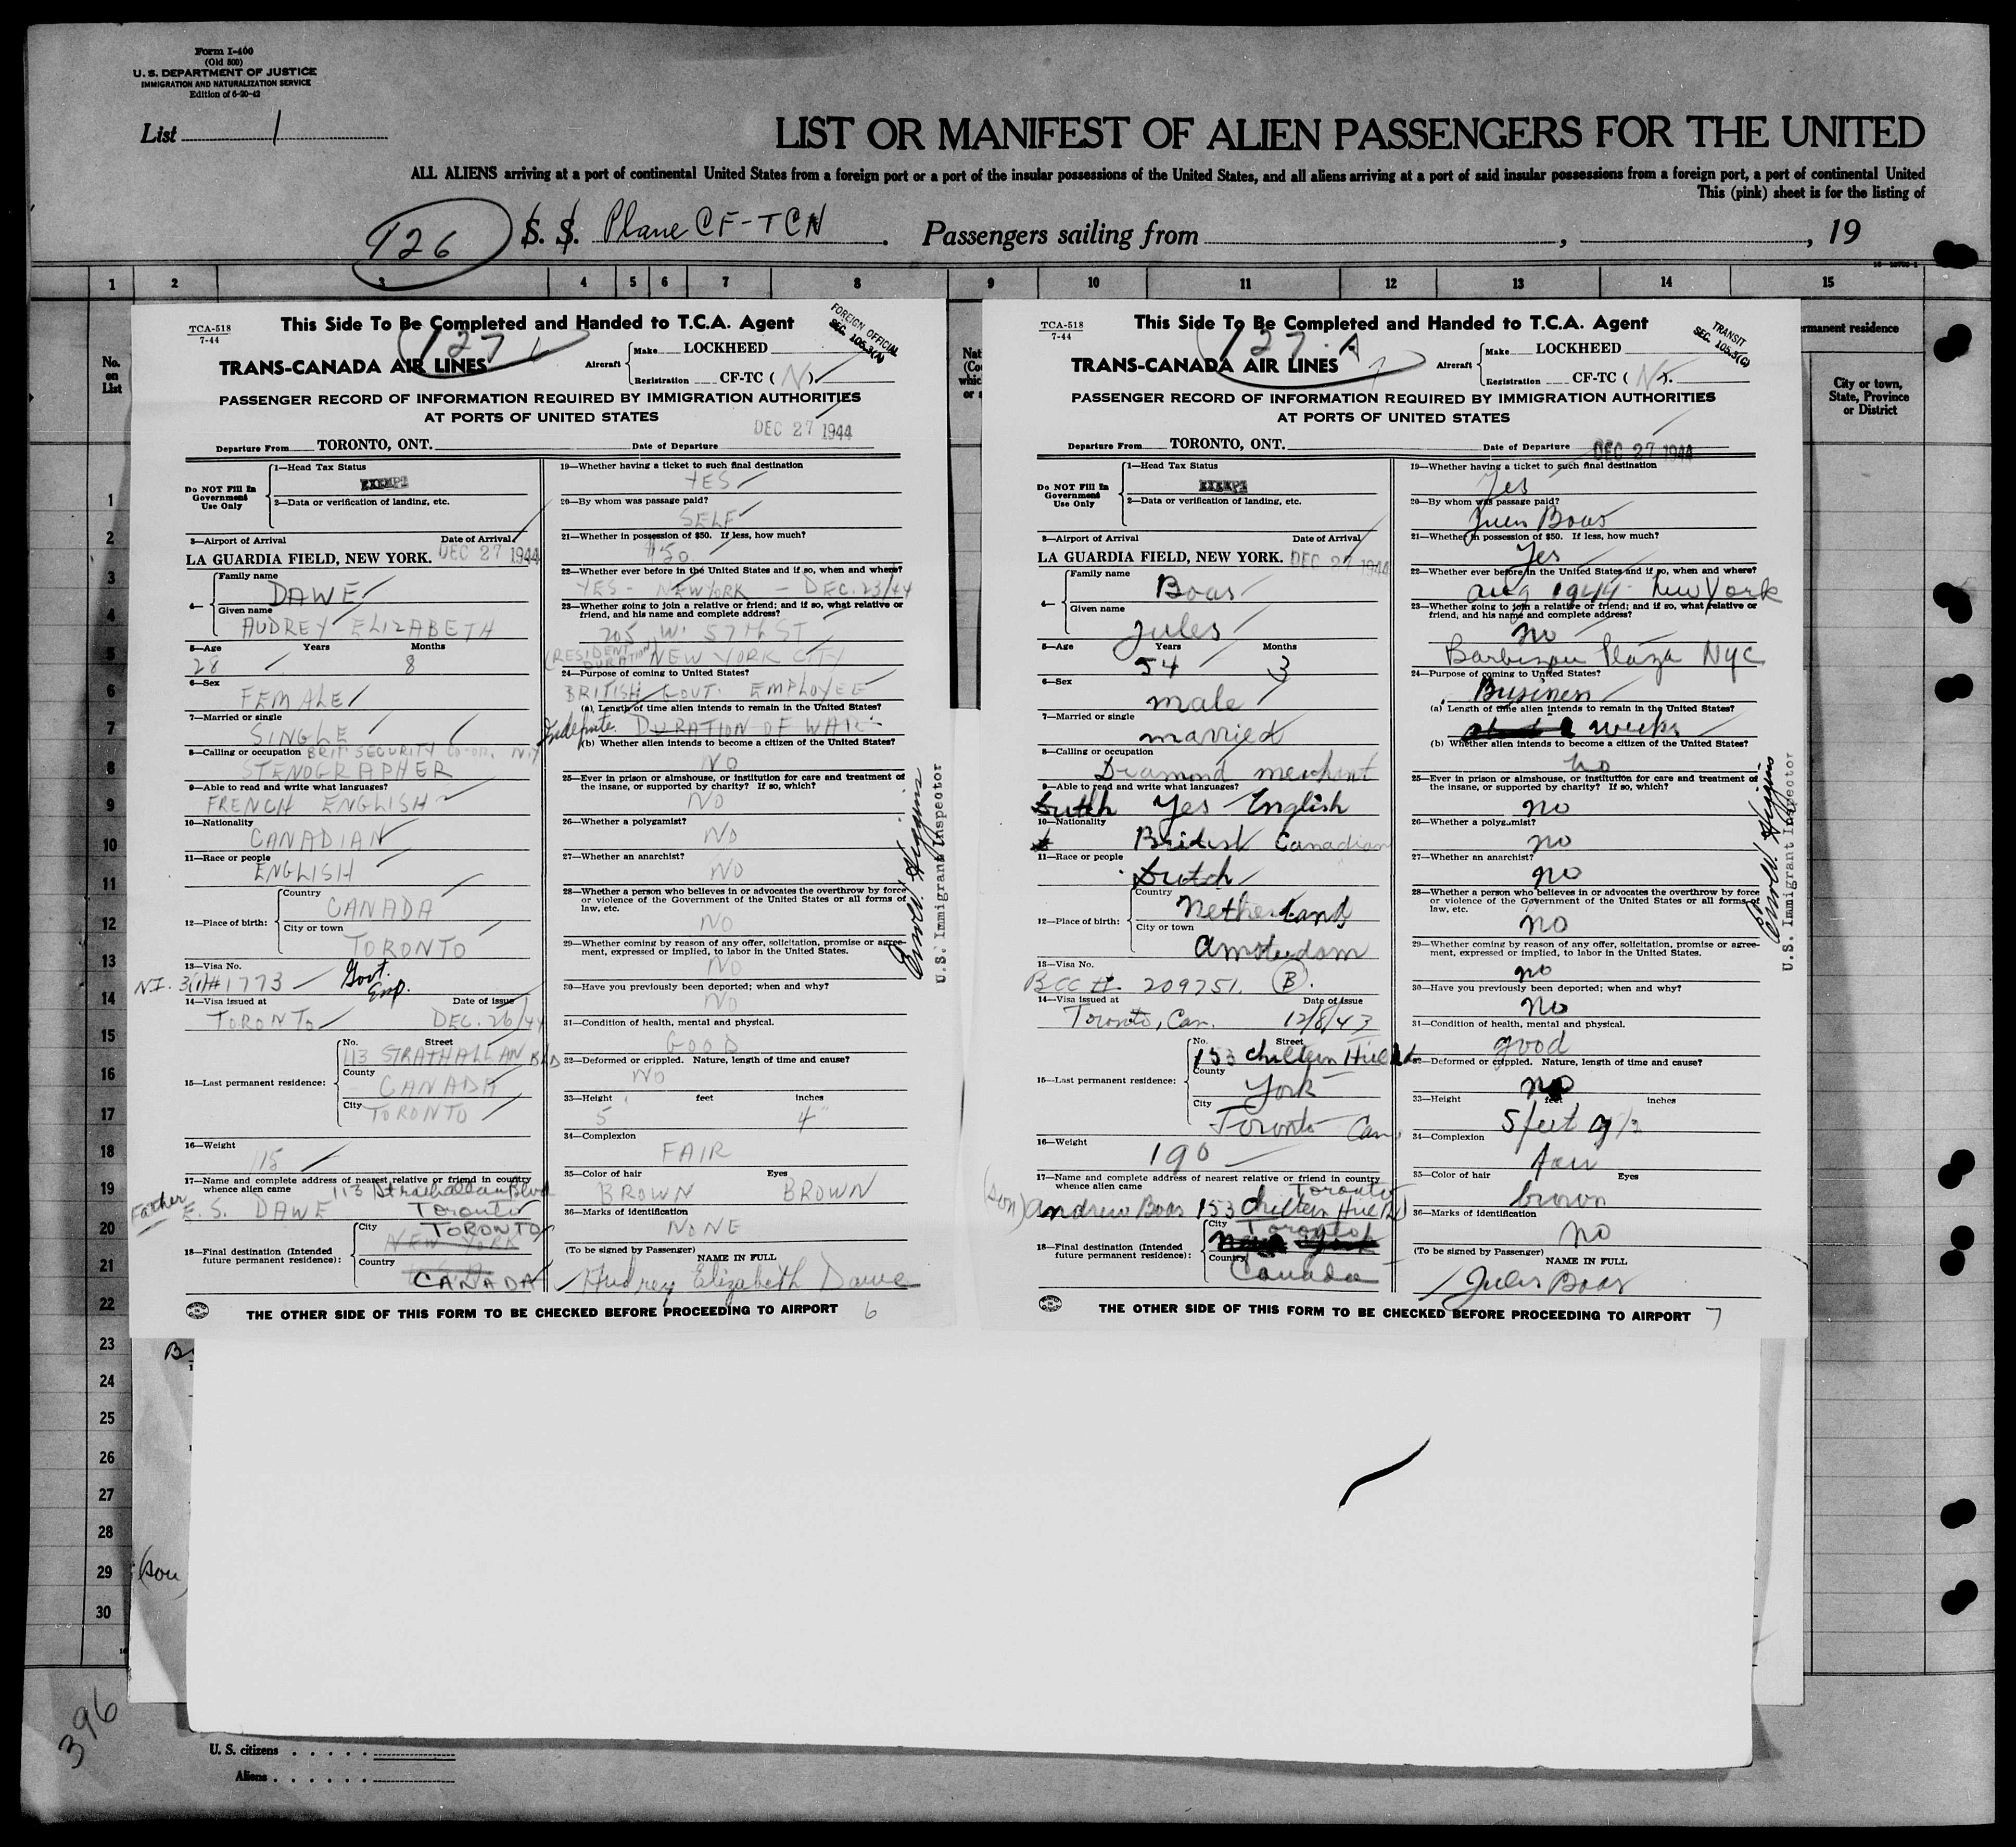 Form I-400
(Old 500)
U. S. DEPARTMENT OF JUSTICE
IMMIGRATION AND NATURALIZATION SERVICE
Edition of 6-20-42
List 1
LIST OR MANIFEST OF ALIEN PASSENGERS FOR THE UNITED
ALL ALIENS arriving at a port of continental United States from a foreign port or a port of the insular possessions of the United States, and all aliens arriving at a port of said insular possessions from a foreign port, a port of continental United
This (pink) sheet is for the listing of
926 S. S. Plane CF-TCN. Passengers sailing from , , 19
1 2 3 4 5 6 7 8 9 10 11 12 13 14 15
No.
on
List
1
2
3
4
5
6
7
8
9
10
11
12
13
14
15
16
17
18
19
20
21
22
23
24
25
26
27
28
29
30
TCA-518
7-44
This Side To Be Completed and Handed to T.C.A. Agent
FOREIGN OFFICIAL
SEC. 105.3(N)
127
TRANS-CANADA AIR LINES
Aircraft
Make LOCKHEED
Registration CF-TC ( N )
PASSENGER RECORD OF INFORMATION REQUIRED BY IMMIGRATION AUTHORITIES
AT PORTS OF UNITED STATES
DEC 27 1944
Departure From TORONTO, ONT. Date of Departure
Do NOT Fill In
Government
Use Only
1—Head Tax Status
EXEMPT
2—Data or verification of landing, etc.
3—Airport of Arrival Date of Arrival
LA GUARDIA FIELD, NEW YORK. DEC 27 1944
4—
Family name
DAWE
Given name
AUDREY ELIZABETH
5—Age Years Months
28 8
6—Sex
FEMALE
7—Married or single
SINGLE
8—Calling or occupation BRIT SECURITY CO-OR. N.Y
STENOGRAPHER
9—Able to read and write what languages?
FRENCH ENGLISH
10—Nationality
CANADIAN
11—Race or people
ENGLISH
12—Place of birth:
Country
CANADA
City or town
TORONTO
13—Visa No.
N.I. 3(1)#1773 Govt. Emp.
14—Visa issued at Date of issue
TORONTO DEC. 26/44
15—Last permanent residence:
No. Street
113 STRATHALLAN BLD
County
CANADA
City
TORONTO
16—Weight
115
17—Name and complete address of nearest relative or friend in country
whence alien came 113 Strathallan Blvd
Father E. S. DAWE Toronto
18—Final destination (Intended
future permanent residence):
City TORONTO
NEW YORK
Country
CANADA
19—Whether having a ticket to such final destination
YES
20—By whom was passage paid?
SELF
21—Whether in possession of $50. If less, how much?
$50
22—Whether ever before in the United States and if so, when and where?
YES - NEW YORK - DEC. 23/44
23—Whether going to join a relative or friend; and if so, what relative or
friend, and his name and complete address?
205 W. 57th ST
(RESIDENT DURATION) NEW YORK CITY
24—Purpose of coming to United States?
BRITISH GOVT. EMPLOYEE
(a) Length of time alien intends to remain in the United States?
Indefinite. DURATION OF WAR.
(b) Whether alien intends to become a citizen of the United States?
NO
25—Ever in prison or almshouse, or institution for care and treatment of
the insane, or supported by charity? If so, which?
NO
26—Whether a polygamist?
NO
27—Whether an anarchist?
NO
28—Whether a person who believes in or advocates the overthrow by force
or violence of the Government of the United States or all forms of
law, etc.
NO
29—Whether coming by reason of any offer, solicitation, promise or agree-
ment, expressed or implied, to labor in the United States.
NO
30—Have you previously been deported; when and why?
NO
31—Condition of health, mental and physical.
GOOD
32—Deformed or crippled. Nature, length of time and cause?
NO
33—Height feet inches
5 4"
34—Complexion
FAIR
35—Color of hair Eyes
BROWN BROWN
36—Marks of identification
NONE
(To be signed by Passenger) NAME IN FULL
Audrey Elizabeth Dawe
U.S. Immigrant Inspector
THE OTHER SIDE OF THIS FORM TO BE CHECKED BEFORE PROCEEDING TO AIRPORT 6
TCA-518
7-44
This Side To Be Completed and Handed to T.C.A. Agent
TRANSIT
SEC. 105.3(C)
127-A
TRANS-CANADA AIR LINES
Aircraft
Make LOCKHEED
Registration CF-TC ( N ).
PASSENGER RECORD OF INFORMATION REQUIRED BY IMMIGRATION AUTHORITIES
AT PORTS OF UNITED STATES
Departure From TORONTO, ONT. Date of Departure DEC 27 1944
Do NOT Fill In
Government
Use Only
1—Head Tax Status
EXEMPT
2—Data or verification of landing, etc.
3—Airport of Arrival Date of Arrival
LA GUARDIA FIELD, NEW YORK. DEC 27 1944
4—
Family name
Boas
Given name
Jules
5—Age Years Months
54 3
6—Sex
male
7—Married or single
married
8—Calling or occupation
Diamond merchant
9—Able to read and write what languages?
Dutch Yes English
10—Nationality
British Canadian
11—Race or people
Dutch
12—Place of birth:
Country
Netherland
City or town
Amsterdam
13—Visa No.
BCC #. 209751. (B).
14—Visa issued at Date of issue
Toronto, Can. 12/8/43
15—Last permanent residence:
No. Street
153 Chiltern Hill Rd
County
York
City
Toronto Can.
16—Weight
190
17—Name and complete address of nearest relative or friend in country
whence alien came Toronto
(son) Andrew Boas 153 Chiltern Hill Rd
18—Final destination (Intended
future permanent residence):
City Toronto
New York
Country
Canada
19—Whether having a ticket to such final destination
Yes
20—By whom was passage paid?
Jules Boas
21—Whether in possession of $50. If less, how much?
Yes
22—Whether ever before in the United States and if so, when and where?
Aug 1944 New York
23—Whether going to join a relative or friend; and if so, what relative or
friend, and his name and complete address?
no
Barbizon Plaza NYC
24—Purpose of coming to United States?
Business
(a) Length of time alien intends to remain in the United States?
2 weeks
(b) Whether alien intends to become a citizen of the United States?
no
25—Ever in prison or almshouse, or institution for care and treatment of
the insane, or supported by charity? If so, which?
no
26—Whether a polygamist?
no
27—Whether an anarchist?
no
28—Whether a person who believes in or advocates the overthrow by force
or violence of the Government of the United States or all forms of
law, etc.
no
29—Whether coming by reason of any offer, solicitation, promise or agree-
ment, expressed or implied, to labor in the United States.
no
30—Have you previously been deported; when and why?
no
31—Condition of health, mental and physical.
good
32—Deformed or crippled. Nature, length of time and cause?
no
33—Height feet inches
5 feet 9 1/2
34—Complexion
fair
35—Color of hair Eyes
brown
36—Marks of identification
no
(To be signed by Passenger) NAME IN FULL
Jules Boas
U.S. Immigrant Inspector
THE OTHER SIDE OF THIS FORM TO BE CHECKED BEFORE PROCEEDING TO AIRPORT 7
rmanent residence
City or town,
State, Province
or District
(son)
396
U. S. citizens
Aliens